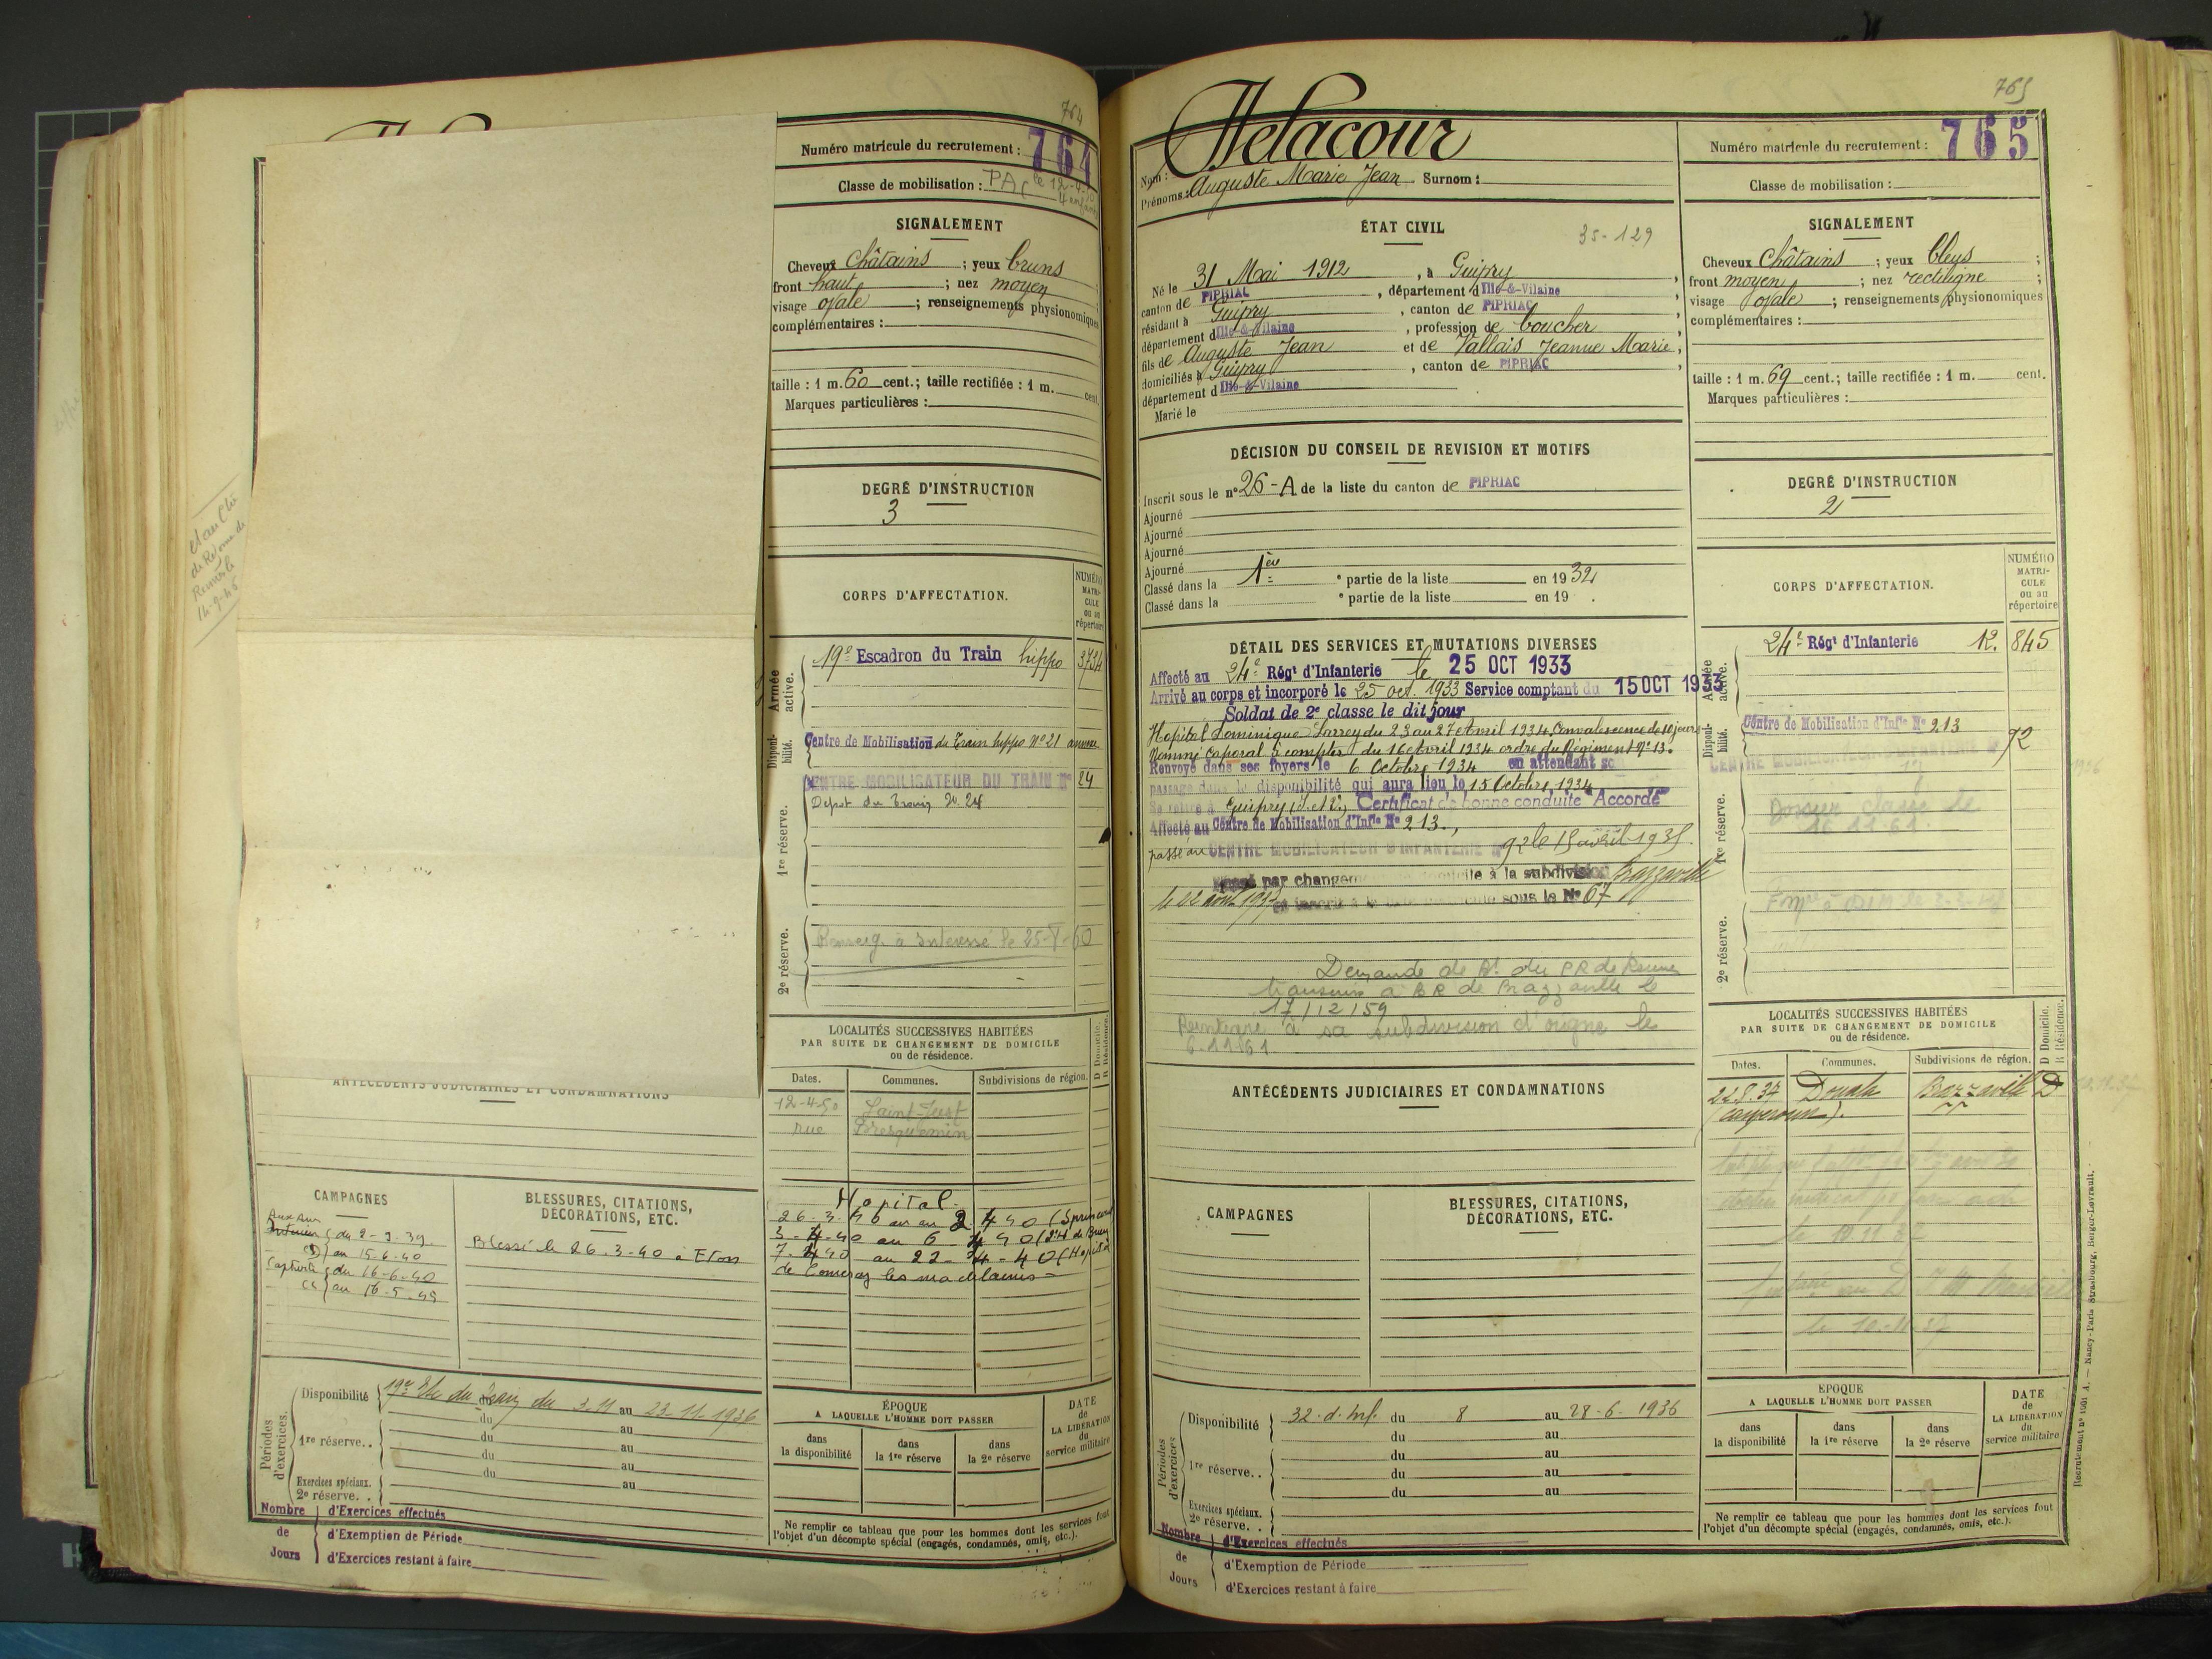 764
Numéro matricule du recrutement : 764
Classe de mobilisation : PAC le 12-4-50
4 enfants
SIGNALEMENT
Cheveux châtains ; yeux bruns
front haut ; nez moyen
visage ovale ; renseignements physionomiques
complémentaires :
taille : 1 m. 60 cent.; taille rectifiée : 1 m. cent.
Marques particulières :
DEGRÉ D'INSTRUCTION
3
CORPS D'AFFECTATION.
NUMÉRO
MATRI-
CULE
ou au
répertoire
Armée active.
19e Escadron du Train hippo 3734
Disponi-bilité.
Centre de Mobilisation du Train hippo No 21 annexe
CENTRE MOBILISATEUR DU TRAIN No 24
1re réserve.
Depot du Train No 24
2e réserve.
Renseig. à Interessé le 25-8-60
LOCALITÉS SUCCESSIVES HABITÉES
PAR SUITE DE CHANGEMENT DE DOMICILE
ou de résidence.
D Domicile.
R Résidence.
Dates. Communes. Subdivisions de région.
12-4-50 Saint-Just
rue
Hopital
de
et au
de Réforme de
Rennes le
14-9-45
ANTÉCÉDENTS JUDICIAIRES ET CONDAMNATIONS
CAMPAGNES
du 2-9-39
au 15-6-40
Captivité du 16-6-40
au 16-5-45
BLESSURES, CITATIONS,
DÉCORATIONS, ETC.
Blessé le 26.3-40 à
Périodes d'exercices.
Disponibilité 19e du Train du 3-11 au 23-11-1936
du au
1re réserve.. du au
du au
du au
Exercices spéciaux.
2e réserve. . au
Nombre de Jours
d'Exercices effectués
d'Exemption de Période
d'Exercices restant à faire
ÉPOQUE
A LAQUELLE L'HOMME DOIT PASSER
dans la disponibilité
dans la 1re réserve
dans la 2e réserve
DATE
de
LA LIBÉRATION
du
service militaire
Ne remplir ce tableau que pour les hommes dont les services font
l'objet d'un décompte spécial (engagés, condamnés, omis, etc.).
765
Nom : Delacour
Prénoms : Auguste Marie Jean Surnom :
ÉTAT CIVIL
35-129
Né le 31 Mai 1912, à Guipry,
canton de PIPRIAC, département d'Ille-&-Vilaine
résidant à Guipry, canton de PIPRIAC,
département d'Ille-&-Vilaine, profession de boucher,
fils de Auguste Jean et de Vallais Jeanne Marie,
domiciliés à Guipry, canton de PIPRIAC,
département d'Ille-&-Vilaine
Marié le
DÉCISION DU CONSEIL DE REVISION ET MOTIFS
Inscrit sous le no 26-A de la liste du canton de PIPRIAC
Ajourné
Ajourné
Ajourné
Ajourné
Classé dans la 1ère e partie de la liste en 1932
Classé dans la e partie de la liste en 19 .
DÉTAIL DES SERVICES ET MUTATIONS DIVERSES
Affecté au 24e Régt d'Infanterie le 25 OCT 1933
Arrivé au corps et incorporé le 25 oct. 1933 Service comptant du 15 OCT 1933
Soldat de 2e classe le dit jour
Hopital Dominique Larrey du 23 au 27 Avril 1934. Convalescence de 10 jours
Nommé Caporal à compter du 16 Avril 1934 ordre du Régiment No 13.
Renvoyé dans ses foyers le 6 Octobre 1934 en attendant so
passage dans la disponibilité qui aura lieu le 15 Octobre 1934
Se retire à Guipry (I. et V.) Certificat de bonne conduite "Accordé"
Affecté au Centre de Mobilisation d'Infie No 213.,
passé au CENTRE MOBILISATEUR D'INFANTERIE No 92 le 15 avril 1935.
Passé par changement de domicile à la subdivision Brazzaville
le 22 août 1937 sous le No 67
Demande de du BR de Rennes
transmis à BR de Brazzaville le
17/12/59
Réintégré à sa subdivision d'origne le
6.11.61
ANTÉCÉDENTS JUDICIAIRES ET CONDAMNATIONS
CAMPAGNES
BLESSURES, CITATIONS,
DÉCORATIONS, ETC.
Périodes d'exercices.
Disponibilité 32. d. Inf. du 8 au 28-6-1936
du au
1re réserve.. du au
du au
du au
Exercices spéciaux.
2e réserve. .
Nombre de Jours
d'Exercices effectués
d'Exemption de Période
d'Exercices restant à faire
Numéro matricule du recrutement : 765
Classe de mobilisation :
SIGNALEMENT
Cheveux châtains ; yeux bleus ;
front moyen ; nez rectiligne ;
visage ovale ; renseignements physionomiques
complémentaires :
taille : 1 m. 69 cent.; taille rectifiée : 1 m. cent.
Marques particulières :
DEGRÉ D'INSTRUCTION
2
CORPS D'AFFECTATION.
NUMÉRO
MATRI-
CULE
ou au
répertoire
Armée active.
24e Régt d'Infanterie 12. 845
Disponi-bilité.
Centre de Mobilisation d'Infie No 213
92
1re réserve.
Dossier classé le
16.11.61.
2e réserve.
LOCALITÉS SUCCESSIVES HABITÉES
PAR SUITE DE CHANGEMENT DE DOMICILE
ou de résidence.
D Domicile.
R Résidence.
Dates. Communes. Subdivisions de région.
22.8.37 Douala Brazzaville D
(Cameroun).
le 10.11.37
le 10-11-37
ÉPOQUE
A LAQUELLE L'HOMME DOIT PASSER
dans la disponibilité
dans la 1re réserve
dans la 2e réserve
DATE
de
LA LIBÉRATION
du
service militaire
Ne remplir ce tableau que pour les hommes dont les services font
l'objet d'un décompte spécial (engagés, condamnés, omis, etc.).
Nancy-Paris Strasbourg, Berger-Levrault.